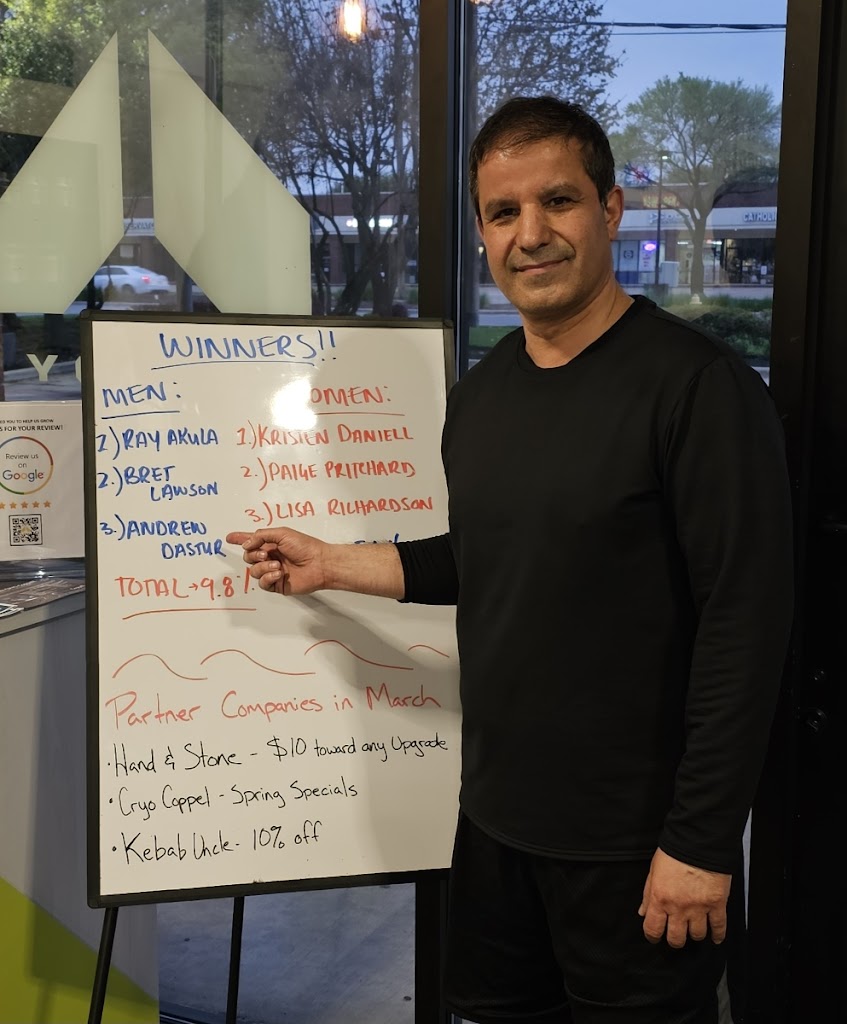 WINNERS!!
MEN:
1.) RAY AKULA
2.) BRET
LAWSON
3.) ANDREW
DASTUR
OMEN:
1.) KRISTEN DANIELL
2.) PAIGE PRITCHARD
3.) LISA RICHARDSON
TOTAL → 9.8%
Partner Companies in March
• Hand & Stone - $10 toward any Upgrade
• Cryo Coppel - Spring Specials
• Kebab Uncle - 10% off
YO
YOU TO HELP US GROW
FOR YOUR REVIEW!
Review us
on
Google
CATHOLIC